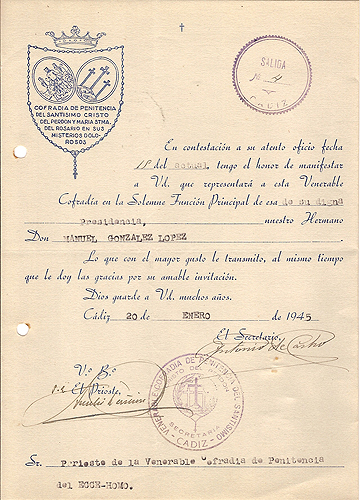 COFRADIA DE PENITENCIA
DEL SANTISIMO CRISTO
DEL PERDON Y MARIA STMA.
DEL ROSARIO EN SUS
MISTERIOS DOLO-
ROSOS
SALIDA
CADIZ
En contestación a su atento oficio fecha
18 del actual, tengo el honor de manifestar
a Vd. que representará a esta Venerable
Cofradía en la Solemne Función Principal de esa de su digna
Presidencia, nuestro Hermano
Don MANUEL GONZALEZ LOPEZ
Lo que con el mayor gusto le transmito, al mismo tiempo
que le doy las gracias por su amable invitación.
Dios guarde a Vd. muchos años.
Cádiz 20 de ENERO de 1945
El Secretario,
Antonio de Castro
V.º B.º
El Prioste,
VENERABLE COFRADIA DE PENITENCIA DEL SANTISIMO
SECRETARIA
CADIZ
Sr. Prrieste de la Venerable Cefradia de Penitencia
del ECCE-HOMO.